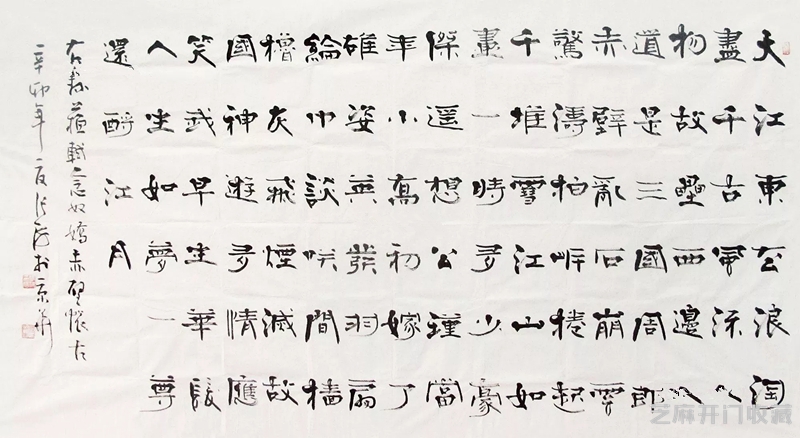 大江東去浪淘
盡千古風流人
物故壘西邊人
道是三國周郎
赤壁亂石崩雲
驚濤拍岸捲起
千堆雪江山如
畫一時多少豪
傑遥想公瑾當
年小喬初嫁了
雄姿英發羽扇
綸巾談咲間檣
櫓灰飛煙滅故
國神遊多情應
笑我早生華髮
人生如夢一尊
還酹江月
右錄蘇軾念奴嬌赤壁懷古
辛卯年夏於京華
芝麻开门收藏